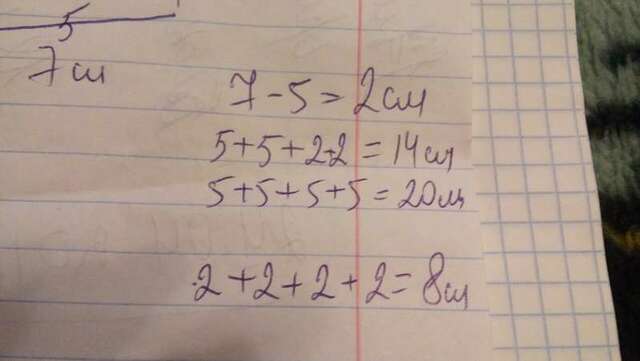 5
7см
7-5=2см
5+5+2+2=14см
5+5+5+5=20см
2+2+2+2=8см